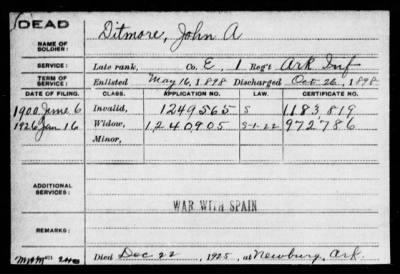 DEAD
NAME OF SOLDIER: Ditmore, John A
SERVICE: Late rank, Co. E, 1 Reg't Ark Inf
TERM OF SERVICE: Enlisted May 16, 1898 Discharged Oct. 26, 1898
DATE OF FILING. CLASS. APPLICATION NO. LAW. CERTIFICATE NO.
1900 June 6 Invalid, 1249565 S 1183819
1926 Jan 16 Widow, 1240905 S-1-22 972786
Minor,
ADDITIONAL SERVICES:
WAR WITH SPAIN
Died Dec 22, 1925, at Newburg, Ark.